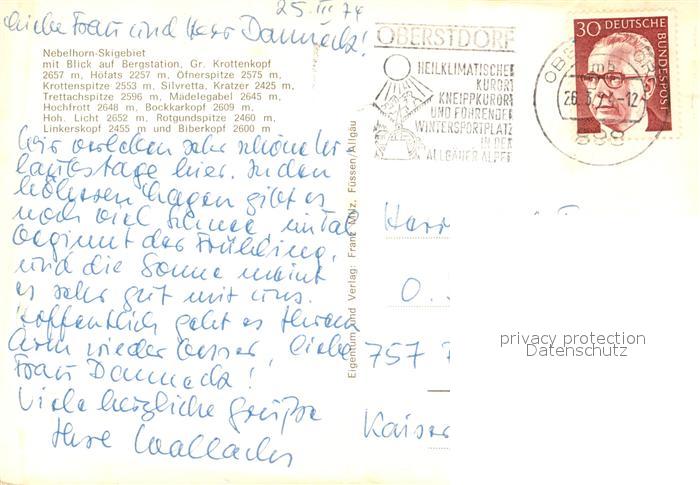 25. III. 74
Liebe Frau und Herr Danneck!
Nebelhorn-Skigebiet
mit Blick auf Bergstation, Gr. Krottenkopf
2657 m, Höfats 2257 m, Öfnerspitze 2575 m,
Krottenspitze 2553 m, Silvretta, Kratzer 2425 m,
Trettachspitze 2596 m, Mädelegabel 2645 m,
Hochfrott 2648 m, Bockkarkopf 2609 m,
Hoh. Licht 2652 m, Rotgundspitze 2460 m,
Linkerskopf 2455 m und Biberkopf 2600 m
wir verleben sehr schöne Ur-
laubstage hier. In den
höheren Lagen gibt es
noch viel Schnee, im Tal
beginnt der Frühling,
und die Sonne meint
es sehr gut mit uns.
Hoffentlich geht es Ihrem
Arm wieder besser, liebe
Frau Danneck!
Viele herzliche Grüße
Ihre Wallachs
Eigentum und Verlag: Franz Milz, Füssen/Allgäu
OBERSTDORF
HEILKLIMATISCHER
KURORT
KNEIPPKURORT
UND FÜHRENDER
WINTERSPORTPLATZ
IN DEN
ALLGÄUER ALPEN
30 DEUTSCHE
BUNDESPOST
mb
26.3.74-12
898
Herr
O.
757
Kaiser
privacy protection
Datenschutz